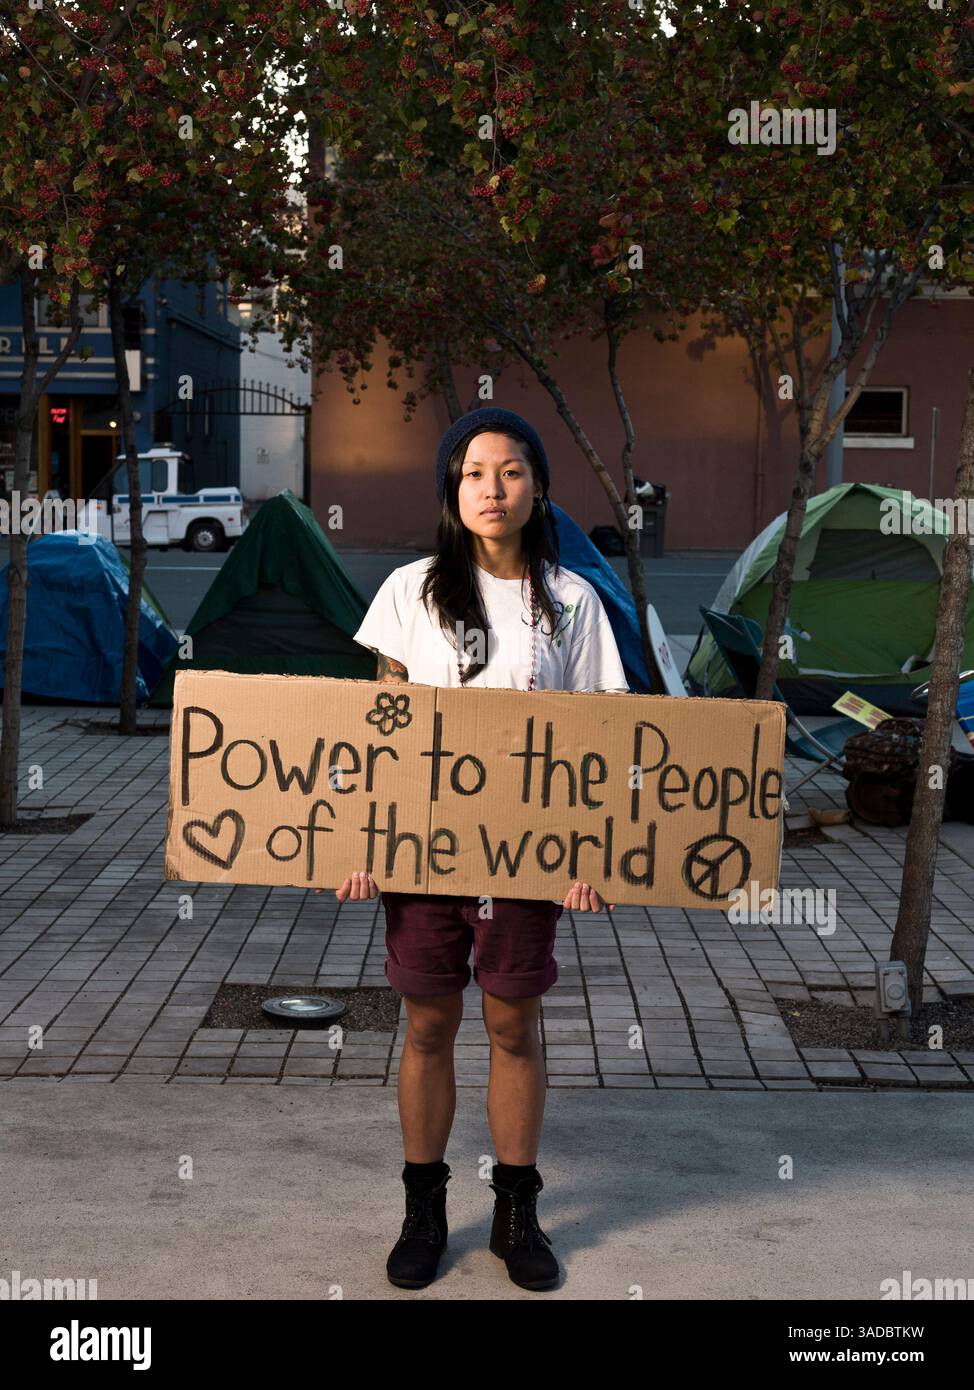 Power to the People
of the world
alamy
alamy
Image ID: 3ADBTKW
www.alamy.com